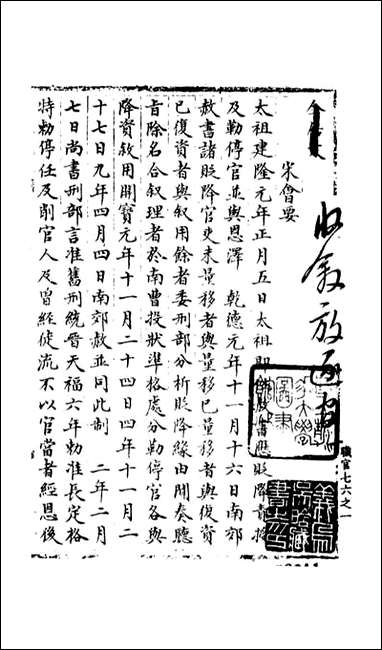 收叙放逐官
宋會要
太祖建隆元年正月五日太祖即位赦書應貶降責授
及勒停官並與恩澤　乾德元年十一月十六日南郊
赦書諸貶降官史未量移者與量移已量移者與復資
已復資者與叙用餘者委刑部分析貶降緣由聞奏聽
旨除名合叙理者於南曹投狀準格處分勒停官各與
降資敘用開寶元年十一月二十四日四年十一月二
十七日九年四月四日南郊赦並同此制　二年二月
七日尚書刑部言准舊刑統晉天福六年勅准長定格
特勅停任及削官人及曾經徒流不以官當者經恩後
職官七六之一